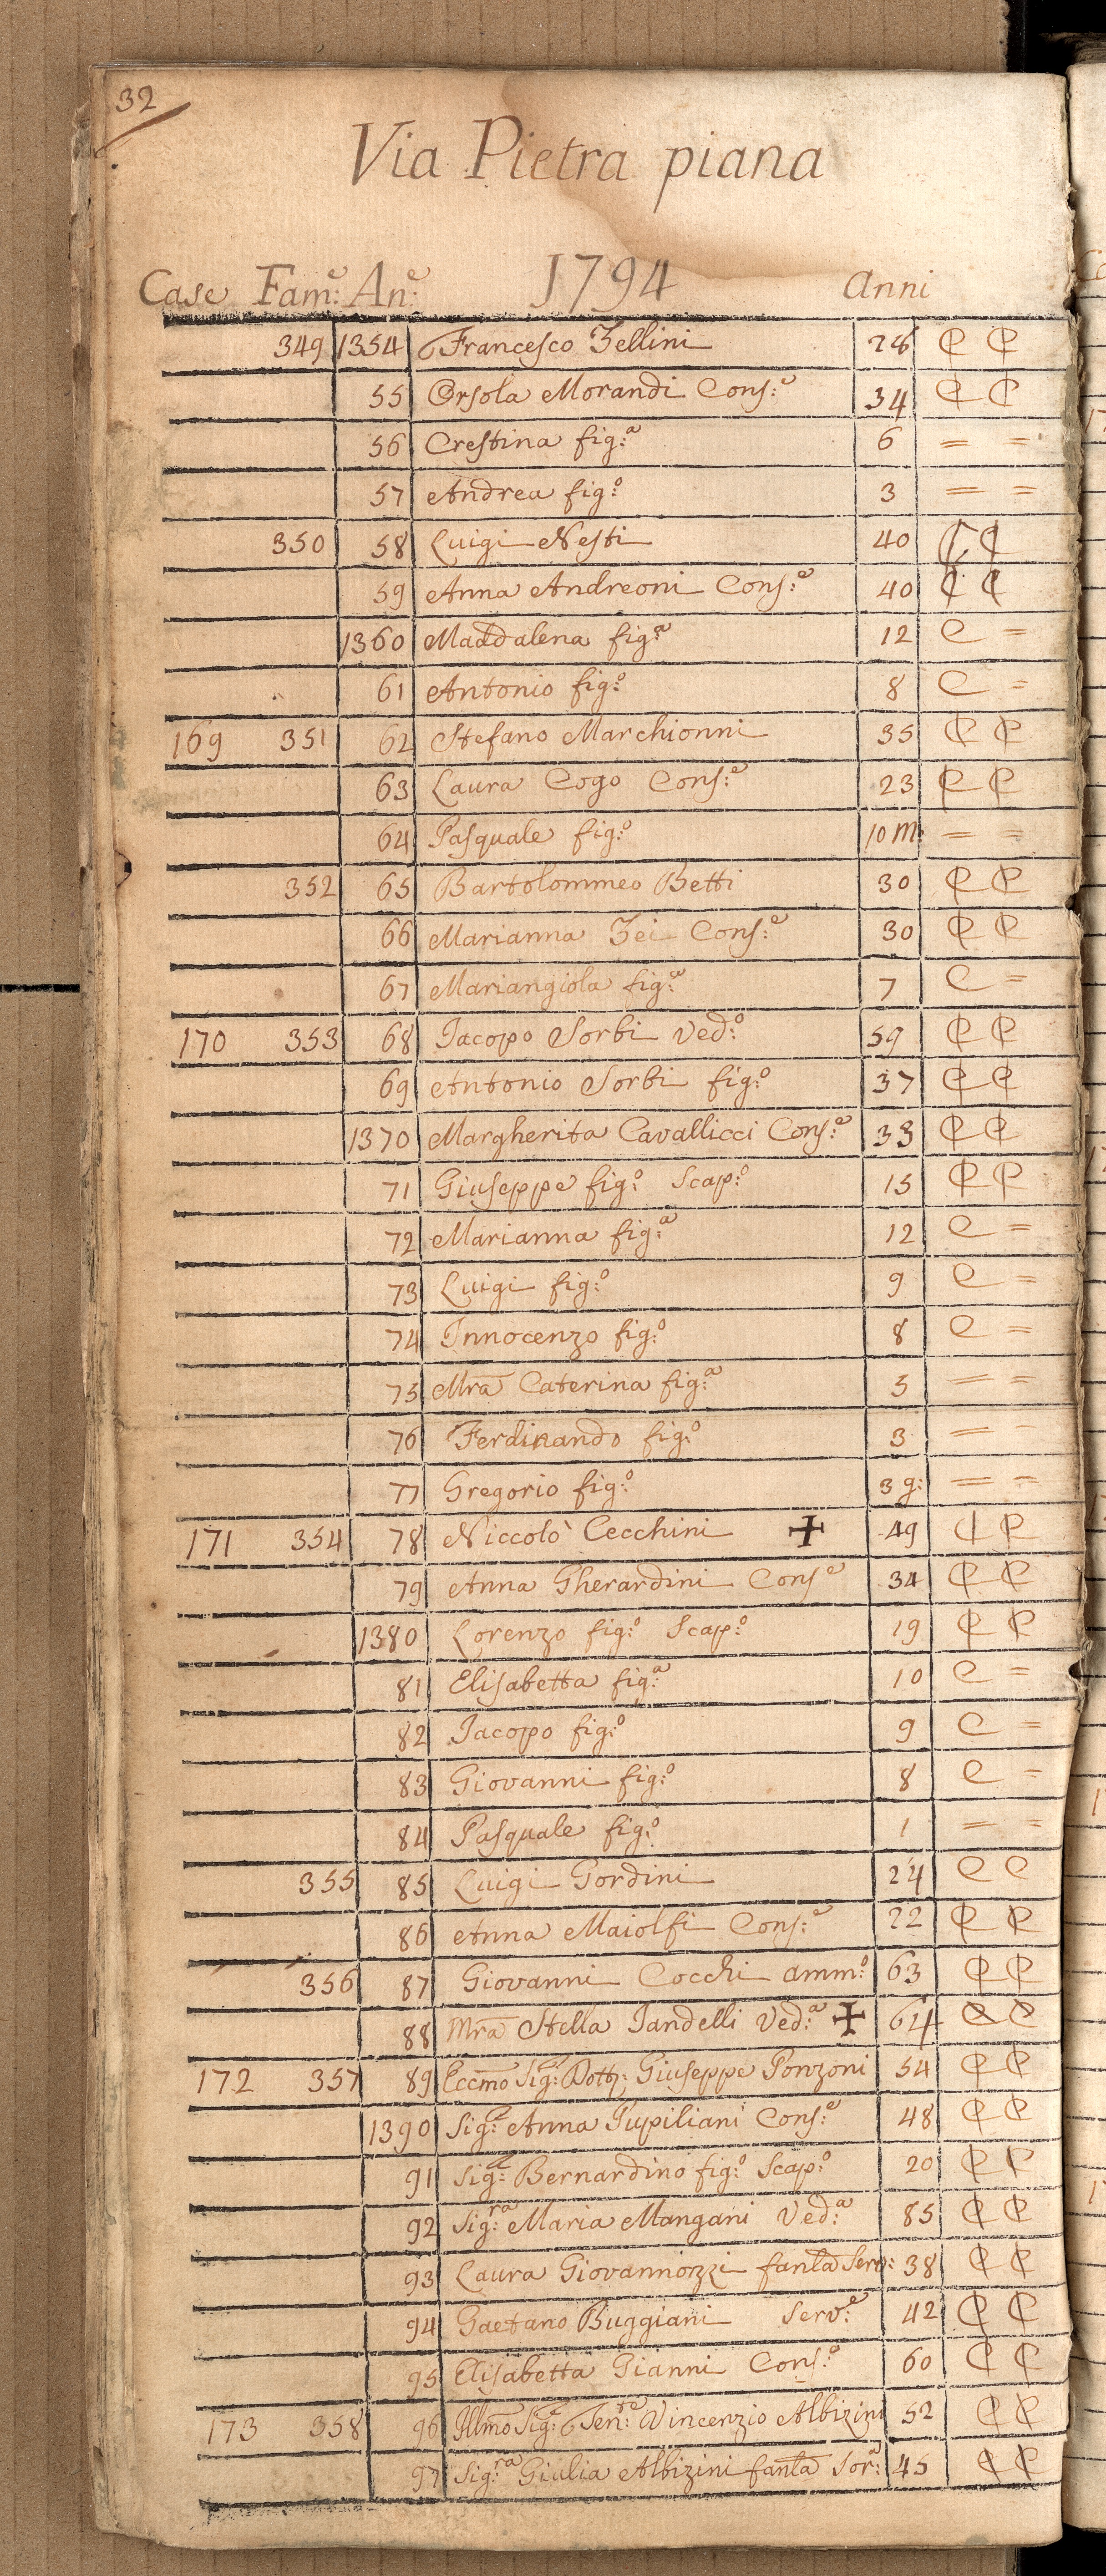 32
Via Pietra piana
Case Fam:e An:e 1794 Anni
349 1354 Francesco Zellini 28 C C
55 Orsola Morandi Cons:e 34 C C
56 Crestina fig:a 6 = =
57 Andrea fig:o 3 = =
350 58 Luigi Nesti 40 C C
59 Anna Andreoni Cons:e 40 C C
1360 Maddalena fig:a 12 C =
61 Antonio fig:o 8 C =
169 351 62 Stefano Marchionni 35 C C
63 Laura Cogo Cons:e 23 C C
64 Pasquale fig:o 10 m: = =
352 65 Bartolommeo Betti 30 C C
66 Marianna Zei Cons:e 30 C C
67 Mariangiola fig:a 7 C =
170 353 68 Jacopo Sorbi Ved:o 59 C C
69 Antonio Sorbi fig:o 37 C C
1370 Margherita Cavallicci Cons:e 33 C C
71 Giuseppe fig:o Scap:o 15 C C
72 Marianna fig:a 12 C =
73 Luigi fig:o 9 C =
74 Innocenzo fig:o 8 C =
75 Mra Caterina fig:a 5 = =
76 Ferdinando fig:o 3 = =
77 Gregorio fig:o 3 g: = =
171 354 78 Niccolò Cecchini ✝ 49 C C
79 Anna Gherardini Cons:e 34 C C
1380 Lorenzo fig:o Scap:o 19 C C
81 Elisabetta fig:a 10 C =
82 Jacopo fig:o 9 C =
83 Giovanni fig:o 8 C =
84 Pasquale fig:o 1 = =
355 85 Luigi Gordini 24 C C
86 Anna Maiolfi Cons:e 22 C C
356 87 Giovanni Cocchi amm:o 63 C C
88 Mra Stella Jandelli Ved:a ✝ 64 C C
172 357 89 Eccmo Sig: Dott: Giuseppe Ponzoni 54 C C
1390 Sig:a Anna Pupiliani Cons:e 48 C C
91 Sig:e Bernardino fig:o Scap:o 20 C C
92 Sig:ra Maria Mangani Ved:a 85 C C
93 Laura Giovannozzi fanla Serv: 38 C C
94 Gaetano Buggiani Serv:e 42 C C
95 Elisabetta Gianni Cons:e 60 C C
173 358 96 Illmo Sig:e Sen:re Vincenzio Albizini 52 C C
97 Sig:ra Giulia Albizini fanla Sor:a 45 C C